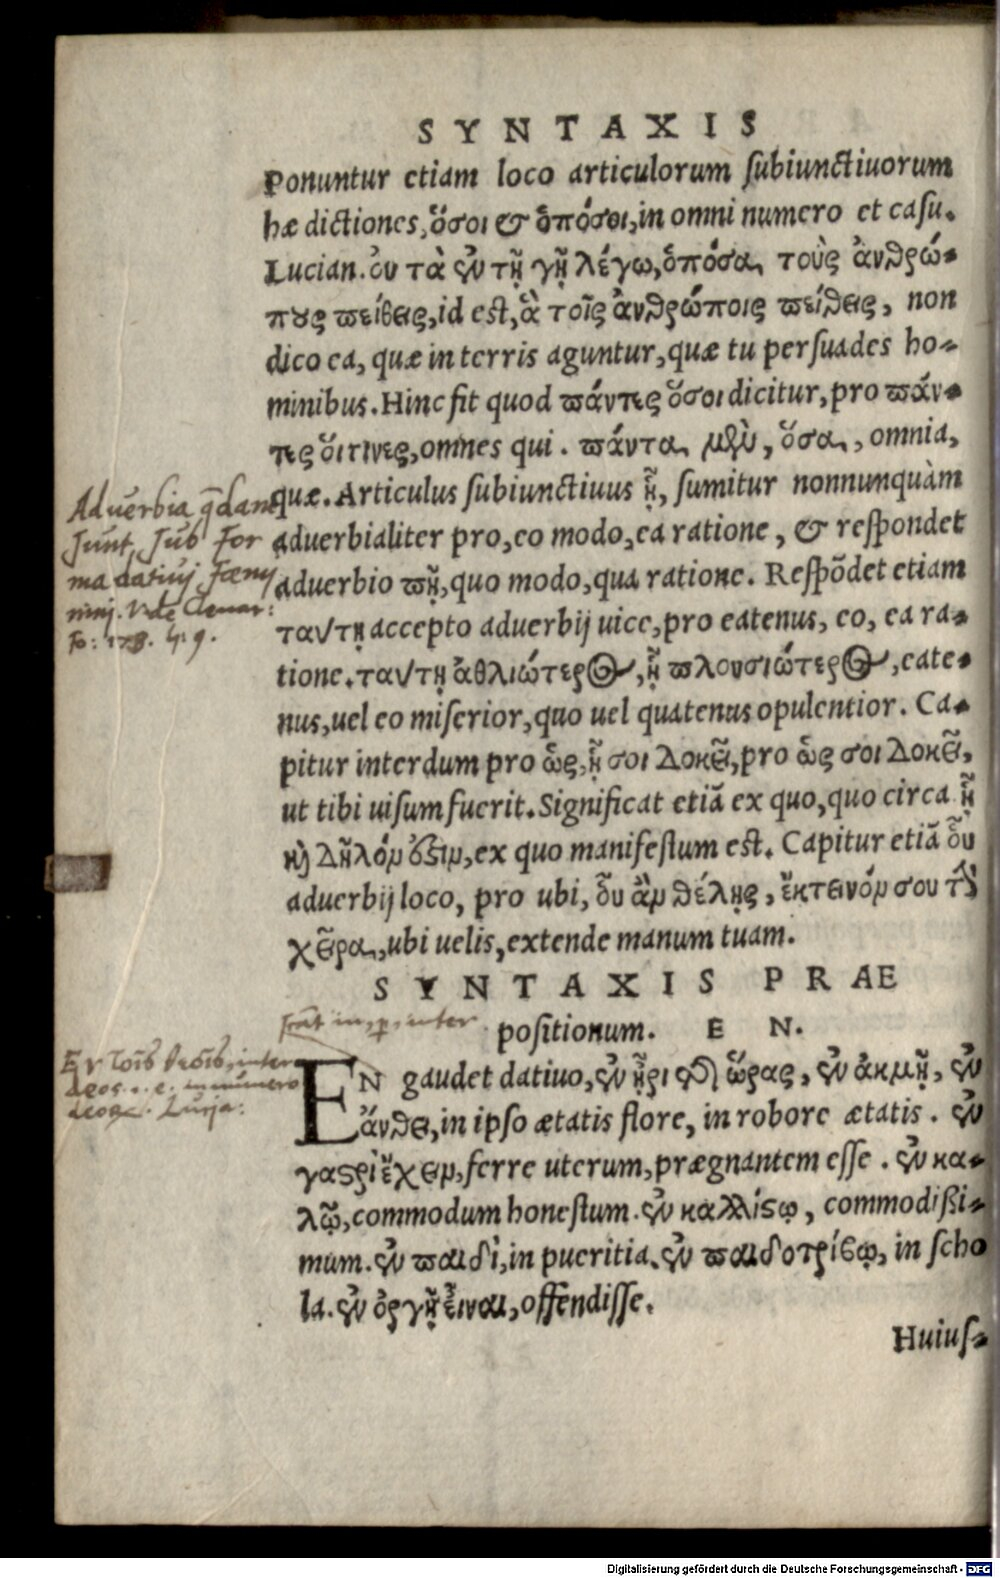 SYNTAXIS
Ponuntur etiam loco articulorum subiunctiuorum
hæ dictiones, ὅσοι & ὁπόσοι, in omni numero et casu.
Lucian. ὀυ τὰ ἐν τῇ γῇ λέγω, ὁπόσα τοὺς ἀνθρώ-
πους πείθεις, id est, ἃ τοῖς ἀνθρώποις πείθεις, non
dico ea, quæ in terris aguntur, quæ tu persuades ho-
minibus. Hinc fit quod πάντες ὅσοι dicitur, pro πάν-
τες ὅιτινες, omnes qui. πάντα μὲν, ὅσα, omnia,
quæ. Articulus subiunctiuus ᾗ, sumitur nonnunquàm
aduerbialiter pro, eo modo, ea ratione, & respondet
aduerbio πῇ, quo modo, qua ratione. Respõdet etiam
ταύτῃ accepto aduerbij uice, pro eatenus, eo, ea ra-
tione. ταύτῃ ἀθλιώτερος, ᾗ πλουσιώτερος, eate-
nus, uel eo miserior, quo uel quatenus opulentior. Ca-
pitur interdum pro ὡς, ᾗ σοι δοκεῖ, pro ὡς σοι δοκεῖ,
ut tibi uisum fuerit. Significat etiã ex quo, quo circa ᾗ
καὶ δῆλόν ἐστιν, ex quo manifestum est. Capitur etiã ὗ
aduerbij loco, pro ubi, ὗ ἂν θέλῃς, ἔκτεινόν σου τὴν
χεῖρα, ubi uelis, extende manum tuam.
SYNTAXIS PRAE
positionum. EN.
EN gaudet datiuo, ἐν ἦρι τῆς ὥρας, ἐν ἀκμῇ, ἐν
ἄνθει, in ipso ætatis flore, in robore ætatis. ἐν
γαστρὶ ἔχειν, ferre uterum, prægnantem esse. ἐν κα-
λῷ, commodum honestum. ἐν καλλίστῳ, commodißi-
mum. ἐν παιδὶ, in pueritia. ἐν παιδοτρίβῳ, in scho
la. ἐν ὀργῇ εἶναι, offendisse.
Huius-
Aduerbia q̃dam
sunt sub for
ma datiuj fœmi
ninj. Vide Clenar:
fo: 178. li 9.
inter
Εν τοῖς θεοῖς, inter
deos. i. e. in numero